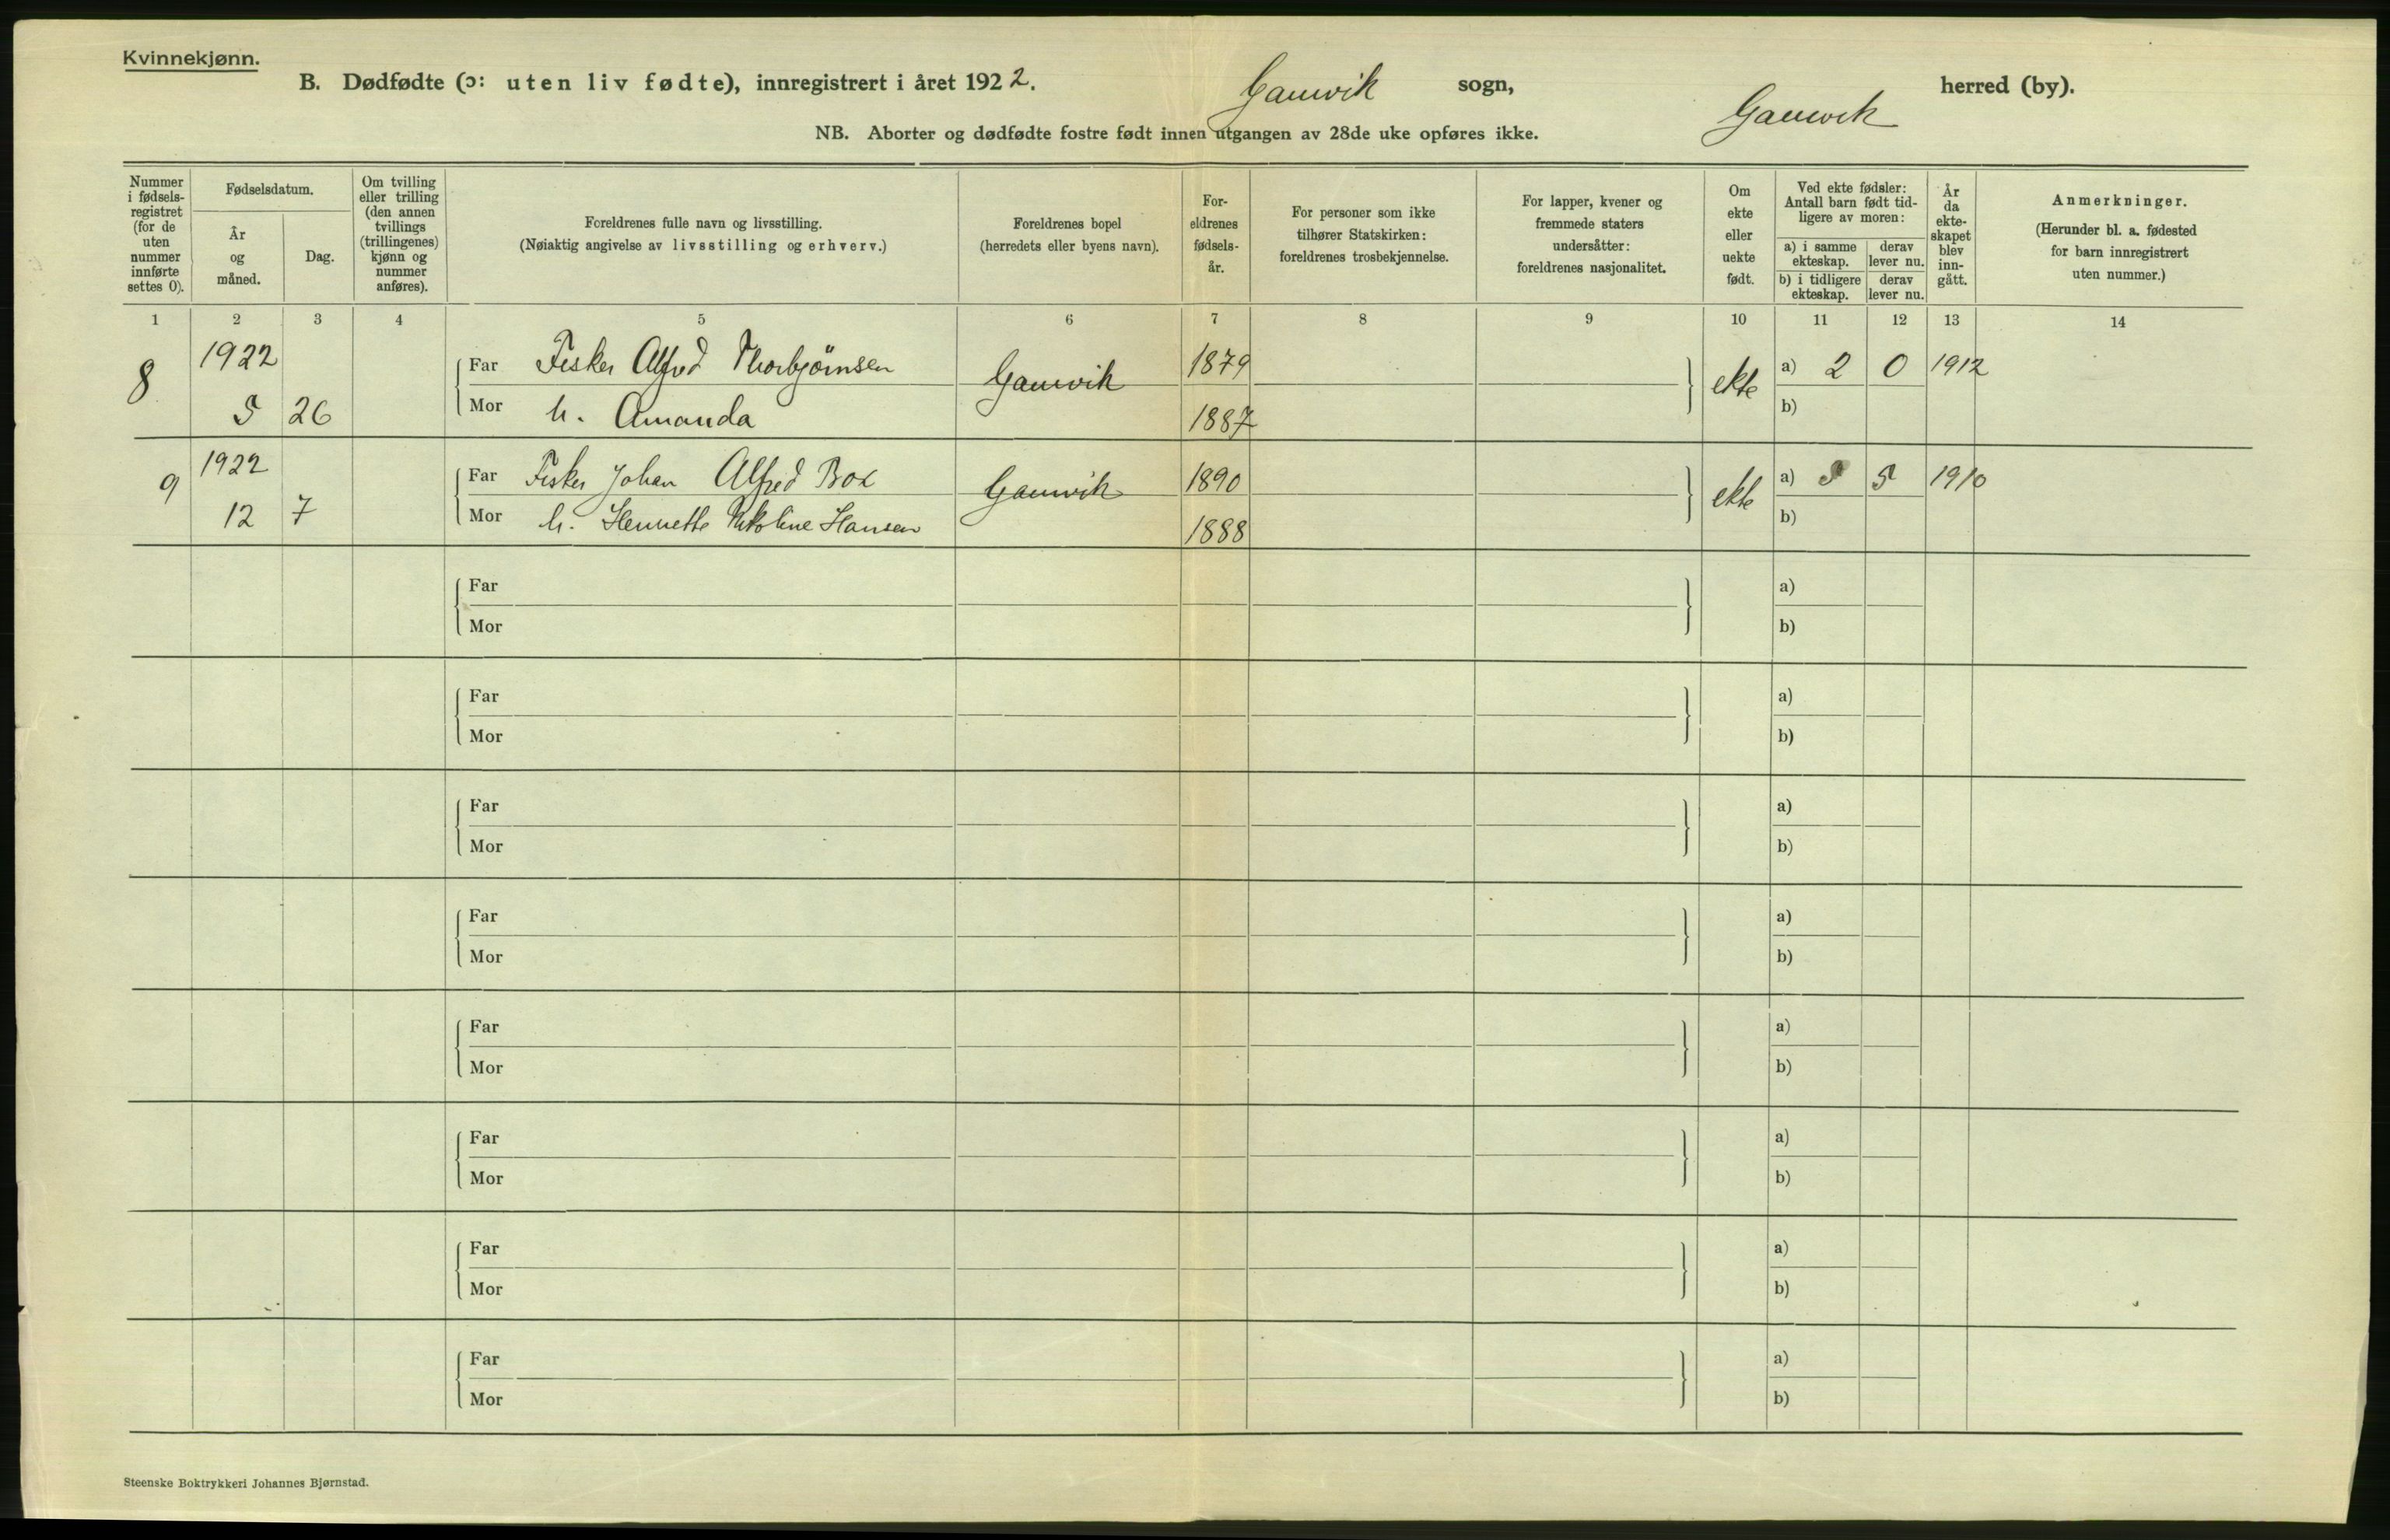 Kvinnekjønn.
B. Dødfødte (ɔ: uten liv fødte), innregistrert i året 1922. Gamvik sogn, Gamvik herred (by).
NB. Aborter og dødfødte fostre født innen utgangen av 28de uke opføres ikke.
Nummer i fødsels-registret (for de uten nummer innførte settes 0).
Fødselsdatum.
År og måned.
Dag.
Om tvilling eller trilling (den annen tvillings (trillingenes) kjønn og nummer anføres).
Foreldrenes fulle navn og livsstilling.
(Nøiaktig angivelse av livsstilling og erhverv.)
Foreldrenes bopel
(herredets eller byens navn).
For-eldrenes fødsels-år.
For personer som ikke tilhører Statskirken: foreldrenes trosbekjennelse.
For lapper, kvener og fremmede staters undersåtter: foreldrenes nasjonalitet.
Om ekte eller uekte født.
Ved ekte fødsler: Antall barn født tid-ligere av moren:
a) i samme ekteskap. derav lever nu.
b) i tidligere ekteskap. derav lever nu.
År da ekte-skapet blev inn-gått.
Anmerkninger.
(Herunder bl. a. fødested for barn innregistrert uten nummer.)
1 2 3 4 5 6 7 8 9 10 11 12 13 14
8 1922 Far Fisker Alfred Thorbjörnsen Gamvik 1879 ekte a) 2 0 1912
5 26 Mor h. Amanda 1887 b)
9 1922 Far Fisker Johan Alfred Gamvik 1890 ekte a) 5 5 1910
12 7 Mor h. Henriette Nikoline Hansen 1888 b)
Far a)
Mor b)
Far a)
Mor b)
Far a)
Mor b)
Far a)
Mor b)
Far a)
Mor b)
Far a)
Mor b)
Far a)
Mor b)
Far a)
Mor b)
Steenske Boktrykkeri Johannes Bjørnstad.